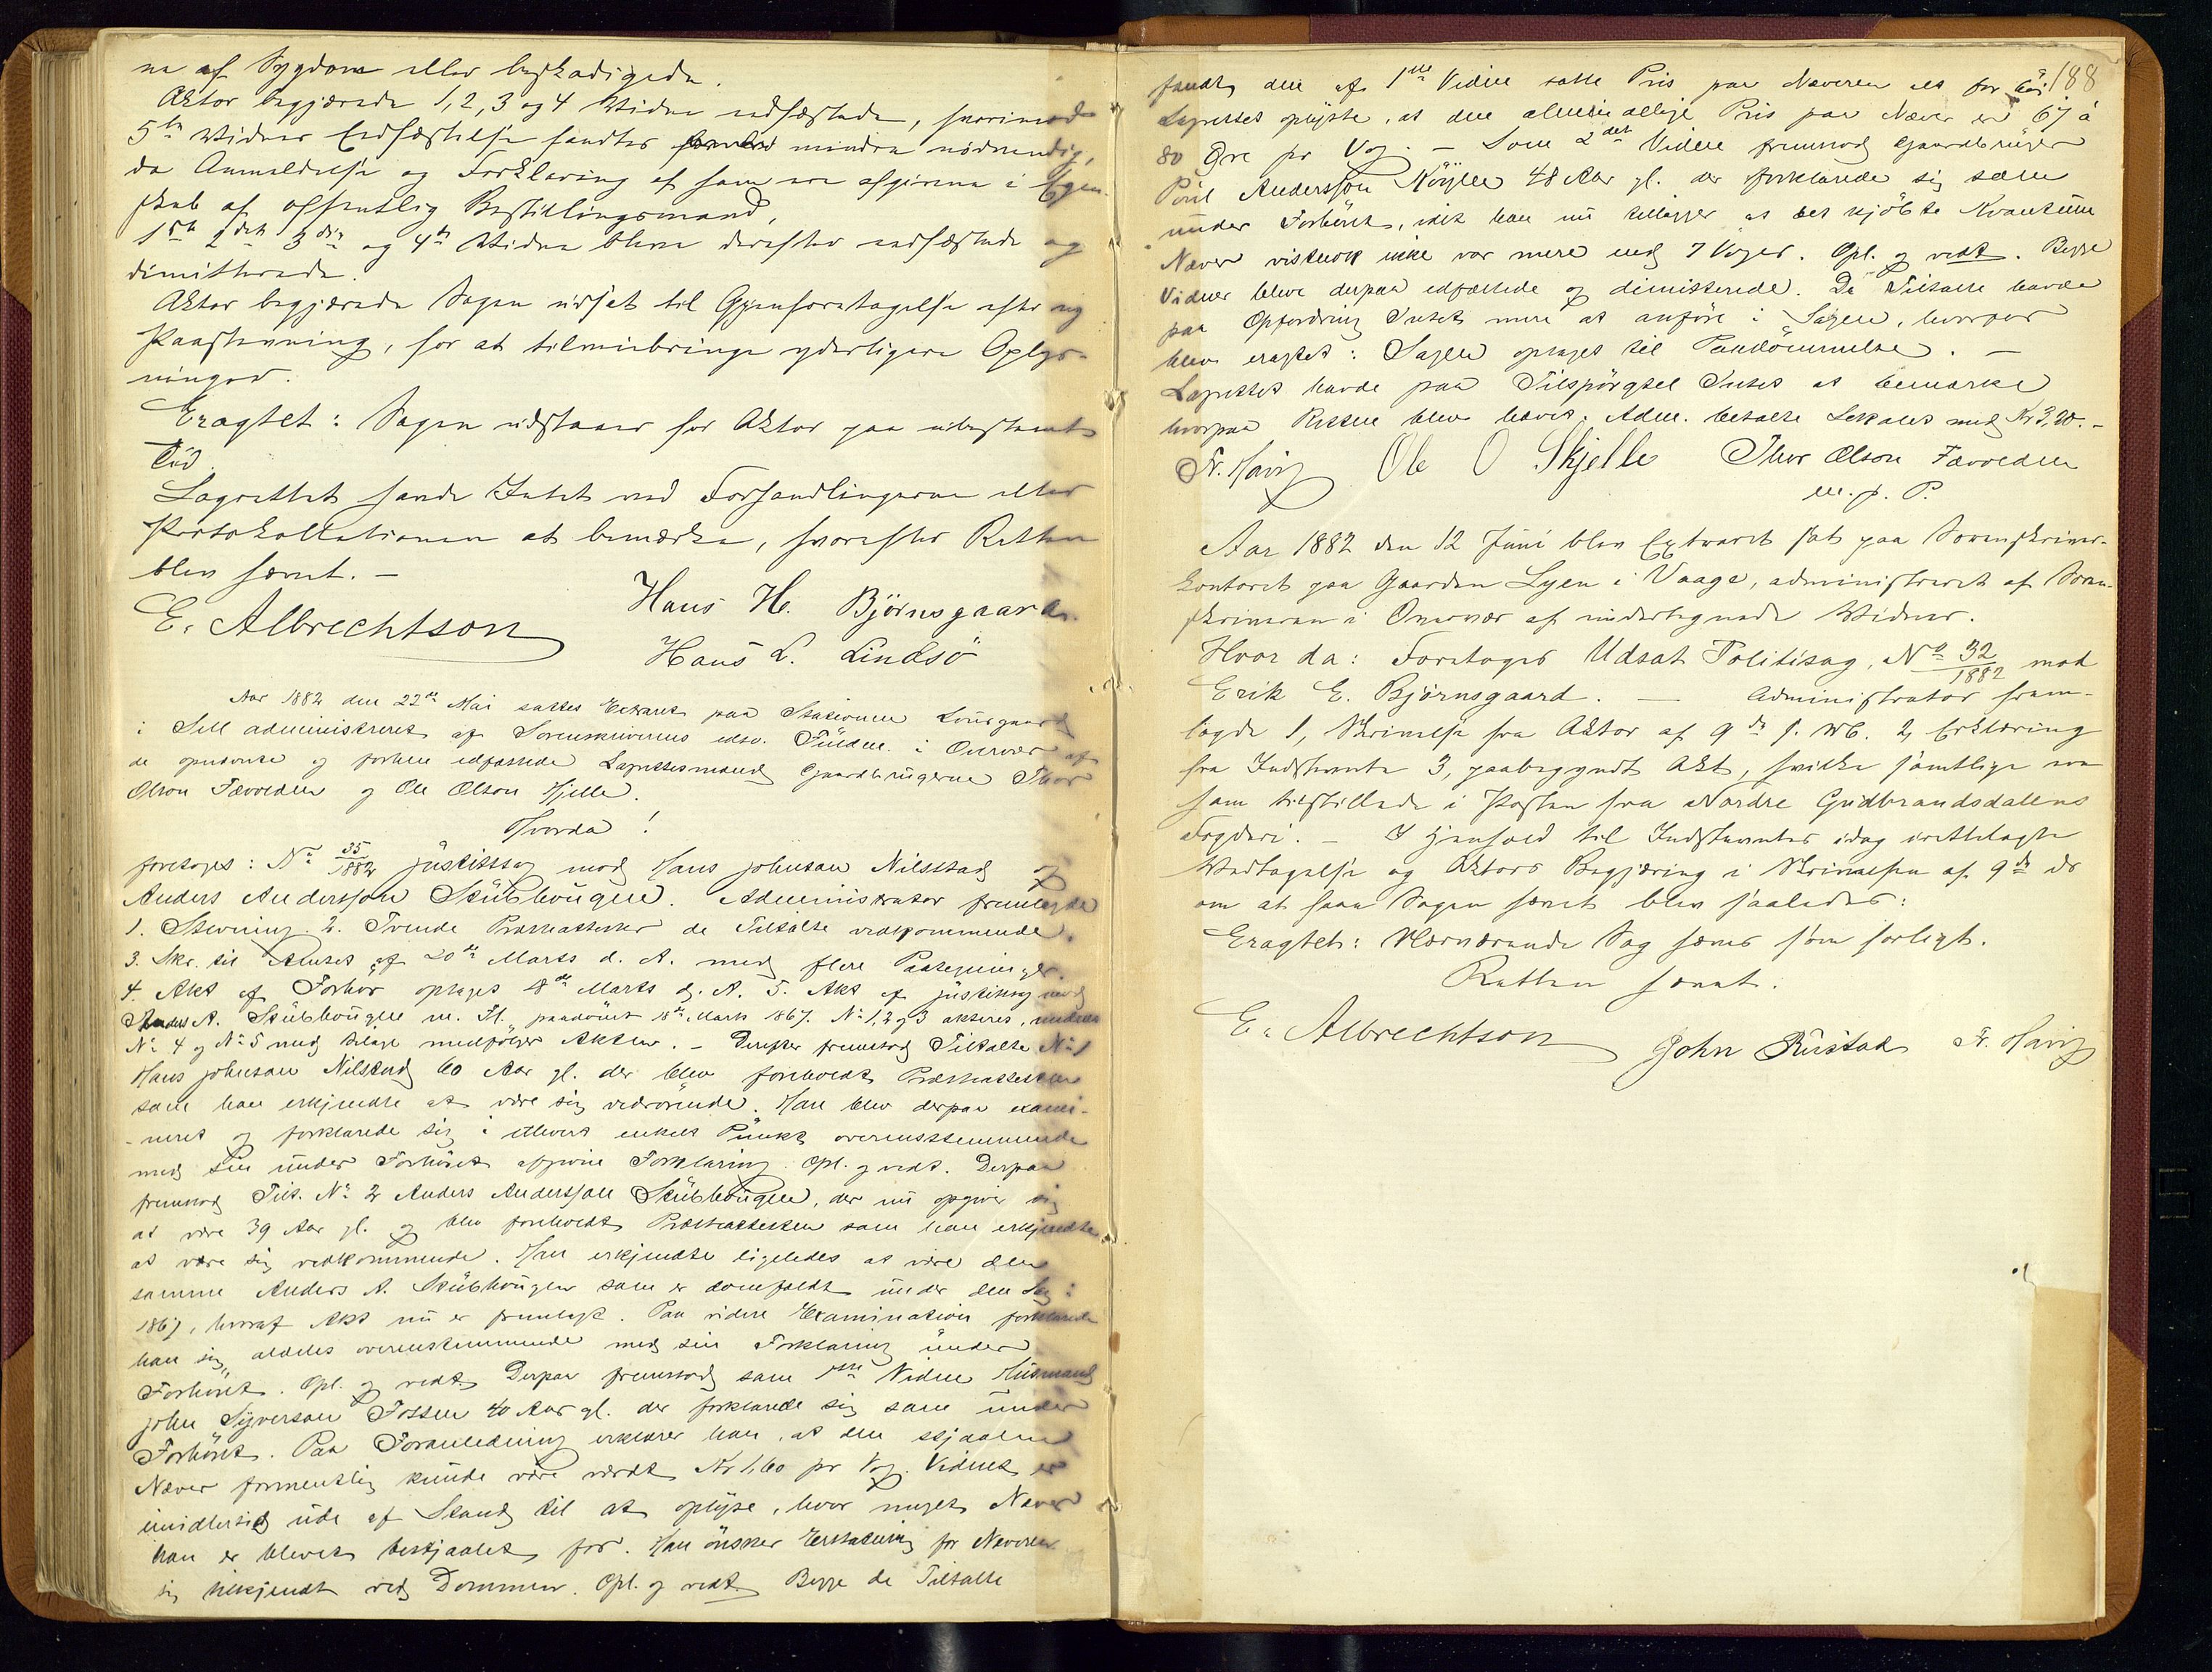 ne af Sygdom eller beskadigede.
Aktor begjærede 1, 2, 3 og 4 Vidne edfæstede, hvorimod
5te Vidnes Edfæstelse fandtes mindre nødvendig,
da Anmeldelse og Forklaring af ham ere afgivne i Egen-
skab af offentlig Bestillingsmand.
1ste 2det 3die og 4de Vidne bleve derefter edfæstede og
dimitterede.
Aktor begjærede Sagen udsat til Gjenforetagelse efter ny
Paastevning, for at tilveiebringe yderligere Oplys-
ninger.
Eragtet: Sagen udstaaer for Aktor paa ubestemt
Tid.
Lagrettet havde Intet ved Forhandlingerne eller
Protokollationen at bemærke, hvorefter Retten
blev hævet. –
E. Albrechtson Hans H. Björnsgaard.
Hans L. Lindsö
Aar 1882 den 22de Mai sattes Extraret paa Stationen Lousgaard
i Sell administreret af Sorenskriverens edsv. Fuldm. i Overvær af
de opnævnte og forhen edfæstede Lagrettesmænd Gaardbrugerne Thor
Olson Færveden og Ole Olson Hjelle.
Hvorda!
foretoges: No 35/1882 Justitssag mod Hans Johnsen Nilsstad og
Anders Anderssen Stübhougen. Administrator fremlagde
1. Stevning. 2. Tvende Præsteattester de Tiltalte vedkommende.
3. Skr. til Amtet af 20de Marts d. A. med flere Paategninger.
4. Akt af Forhør optaget 8de Marts d. A. 5. Akt af Justitssag mod
Anders A. Stübhougen m. Fl. paadömt 18de Marts 1867. No 1, 2 og 3 akteres, medens
No 4 og No 5 med Bilage medfølger Akten. – Derefter fremstod Tiltalte No 1
Hans Johnsen Nilstad 60 Aar gl. der blev foreholdt Præsteattesten
som han erkjendte at være sig vedrørende. Han blev derpaa exami-
-neret og forklarede sig i ethvert enkelt Punkt overensstemmende
med sin under Forhöret afgivne Forklaring. Opl. og vedt. Derpaa
fremstod Tilt. No 2 Anders Anderssen Stübhougen, der nu opgiver sig
at være 39 Aar gl. og blev foreholdt Præsteattesten som han erkjendte
at være sig vedkommende. Han erkjendte ligeledes at være den
samme Anders A. Stübhougen som er domfældt under den Sag i
1867, hvoraf Akt nu er fremlagt. Paa videre Examination forklarede
han sig aldeles overensstemmende med sin Forklaring under
Forhöret. Opl. og vedt. Derpaa fremstod som 1ste Vidne Husmand
John Syversen Fossen 40 Aar gl. der forklarede sig som under
Forhöret. Paa Foranledning erklærer han, at den stjaalne
Næver formentlig kunde være værdt Kr 1,60 pr Vog. Vidnet er
imidlertid ude af Stand til at oplyse, hvor meget Næver
han er blevet bestjaalet for. Han önsker Erstatning for Næveren
sig tilkjendt ved Dommen. Opl. og vedt. Begge de Tiltalte
188
fandt, den af 1ste Vidne satte Pris paa Næveren alt for
Lagrettet oplyste, at den almindelige Pris paa Næver er 67 à
80 Øre pr Vog. – Som 2det Vidne fremstod Gaardbruger
Poul Anderssen 48 Aar gl. der forklarede sig som
under Forhöret, idet han nu tillægger at det kjöbte Kvantum
Næver vistnok ikke var mere end 7 Voger. Opl. og vedt. Begge
Vidner bleve derpaa edfæstede og dimitterede. De Tiltalte havde
paa Opfordring Intet mere at anföre i Sagen, hvorpaa
blev eragtet: Sagen optages til Paadömmelse. –
Lagrettet havde paa Tilspörgsel Intet at bemærke
hvorpaa Retten blev hævet. Adm. betalte Lokalet med Kr 3,20. –
Fr. Ole O Skjelle Thor Olson Færveden
m. p. P.
Aar 1882 den 12 Juni blev Extraret sat paa Sorenskriver-
kontoret paa Gaarden Lyen i Vaage, administreret af Soren-
skriveren i Overvær af undertegnede Vidner.
Hvor da: Foretoges Udsat Politisag, No 32/1882 mod
Erik E. Björnsgaard. – Administrator frem-
lagde 1, Skrivelse fra Aktor af 9de d. M. 2, Erklæring
fra Indstevnte 3, paabegyndt Akt, hvilke samtlige var
ham tilstillede i Posten fra Nordre Gudbrandsdalens
Fogderi. – I Henhold til Indstevntes idag irettelagte
Vedtagelse og Aktors Begjæring i Skrivelsen af 9de ds
om at faae Sagen hævet blev saaledes:
Eragtet: Nærværende Sag hæves som forligt.
Retten hævet.
E. Albrechtson John Rustad Fr.